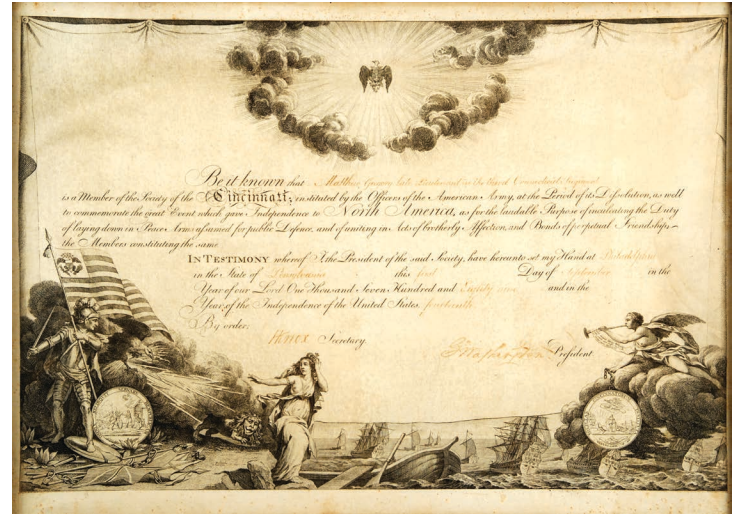 Be it known that Matthew Gregory late Lieutenant in the Third Connecticut Regiment
is a Member of the Society of the Cincinnati; instituted by the Officers of the American Army, at the Period of its Dissolution, as well
to commemorate the great Event which gave Independence to North America, as for the laudable Purpose of inculcating the Duty
of laying down in Peace Arms assumed for public Defence, and of uniting in Acts of brotherly Affection, and Bonds of perpetual Friendship,
the Members constituting the same
In Testimony whereof I the President of the said Society, have hereunto set my Hand at Philadelphia
in the State of Pennsylvania this first Day of September in the
Year of our Lord One Thousand Seven Hundred and Eighty nine and in the
Year of the Independence of the United States.
By order,
HKnox Secretary.
GWashington President